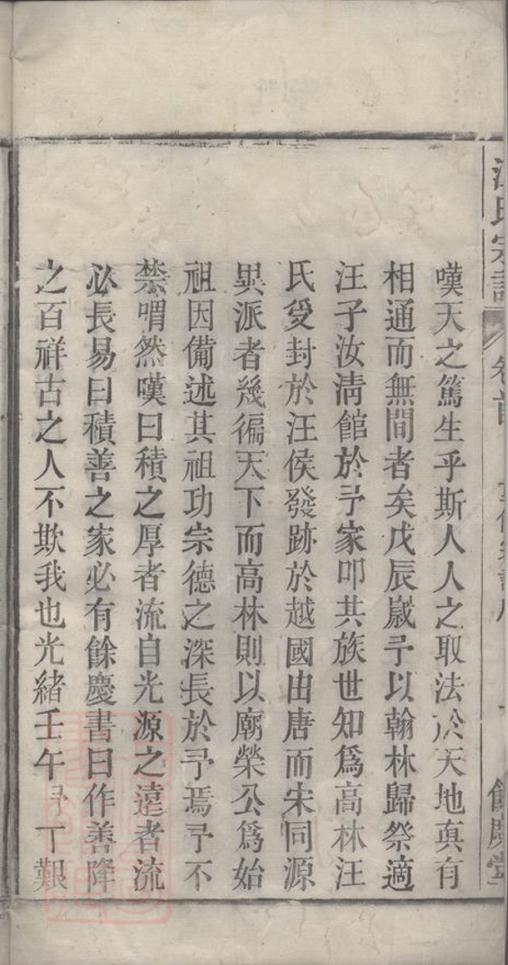 汪氏宗譜
卷首
一
餘慶堂
嘆天之篤生乎斯人人之取法於天地真有
相通而無間者矣戊辰歲予以翰林歸祭適
汪子汝淸館於予家叩其族世知爲高林汪
氏受封於汪侯發跡於越國由唐而宋同源
異派者幾徧天下而高林則以廟榮公爲始
祖因備述其祖功宗德之深長於予焉予不
禁喟然嘆曰積之厚者流自光源之遠者流
必長易曰積善之家必有餘慶書曰作善降
之百祥古之人不欺我也光緒壬午予丁艱